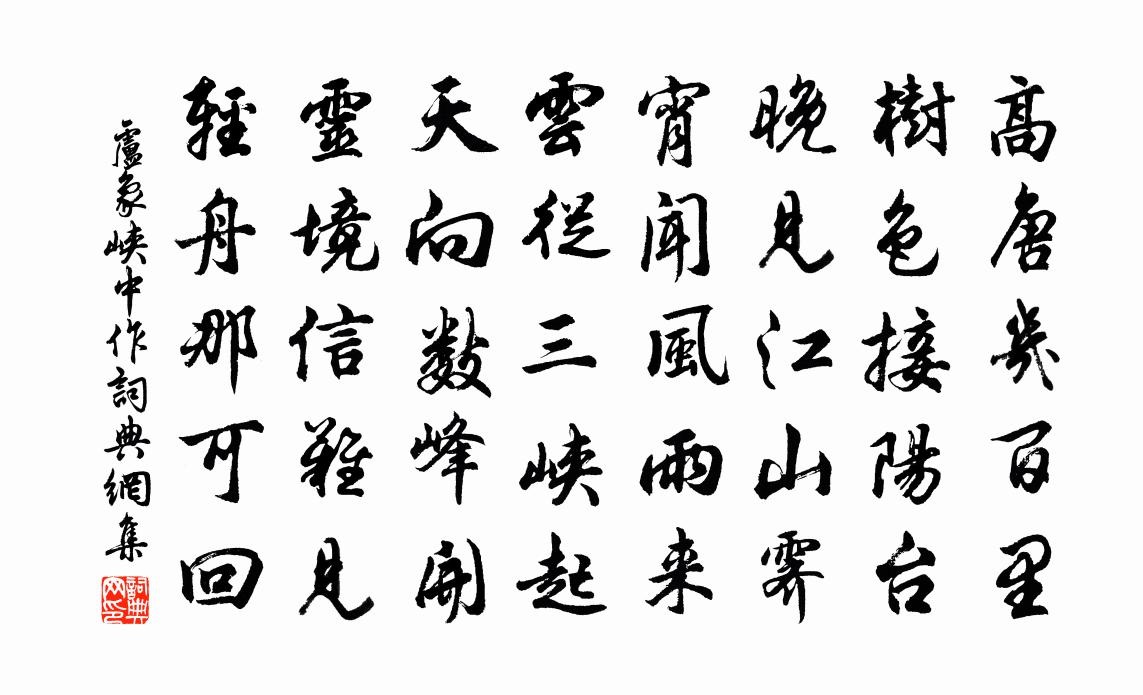 高唐幾百里
樹色接陽台
晚見江山霽
宵聞風雨来
雲從三峽起
天向數峰開
靈境信難見
輕舟那可回
盧象峽中作詞典網集
詞典
网印